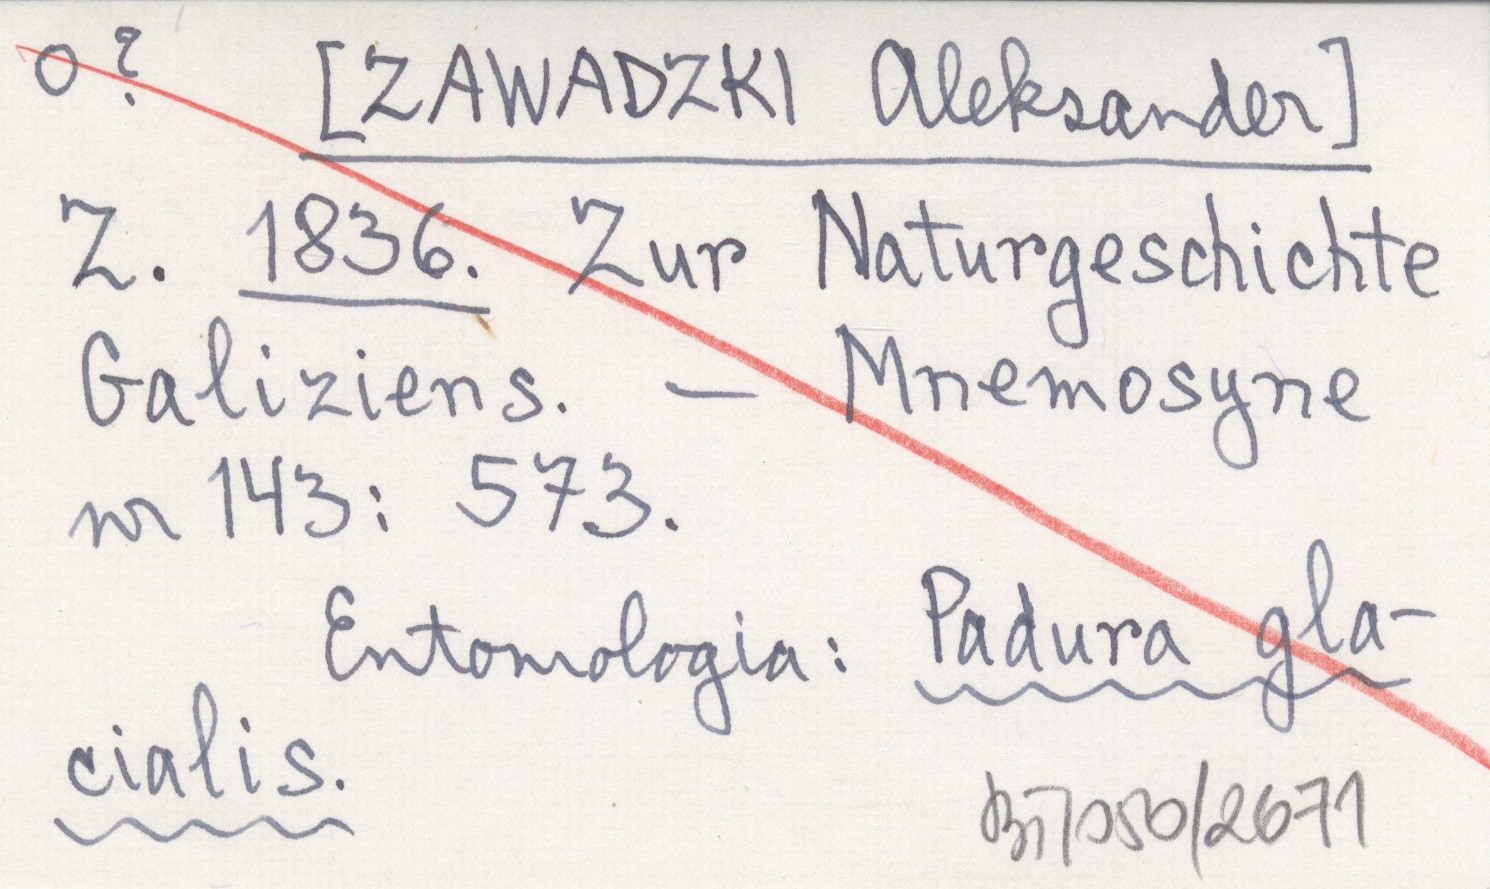 o? [ZAWADZKI Aleksander]
Z. 1836. Zur Naturgeschichte
Galiziens. — Mnemosyne
nr 143: 573.
Entomologia: Padura gla-
cialis.
/2671